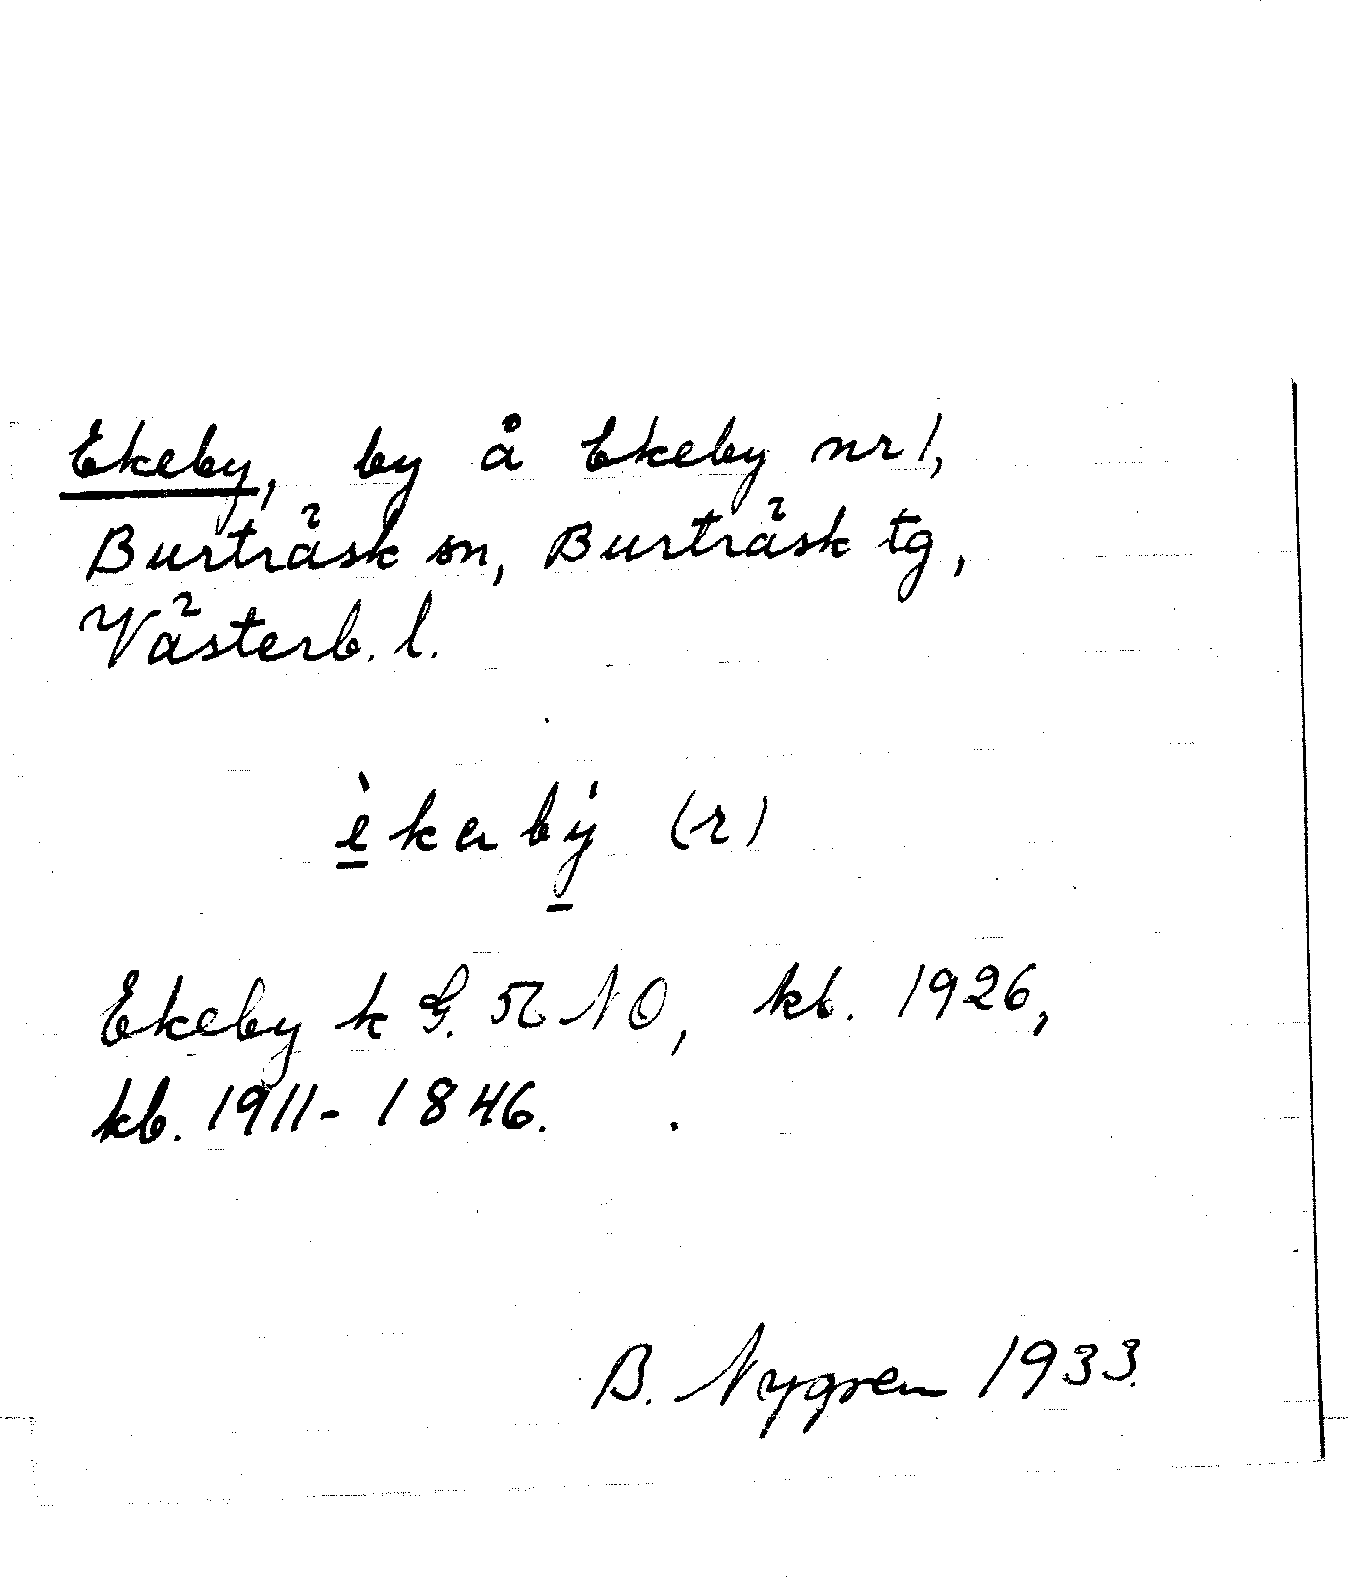 Ekeby, by å Ekeby nr 1,
Burträsk sn, Burträsk tg,
Västerb. l.
èkabý (r)
Ekeby k G. 52 NO, kb. 1926,
kb. 1911-1846.
B. Nygren 1933.